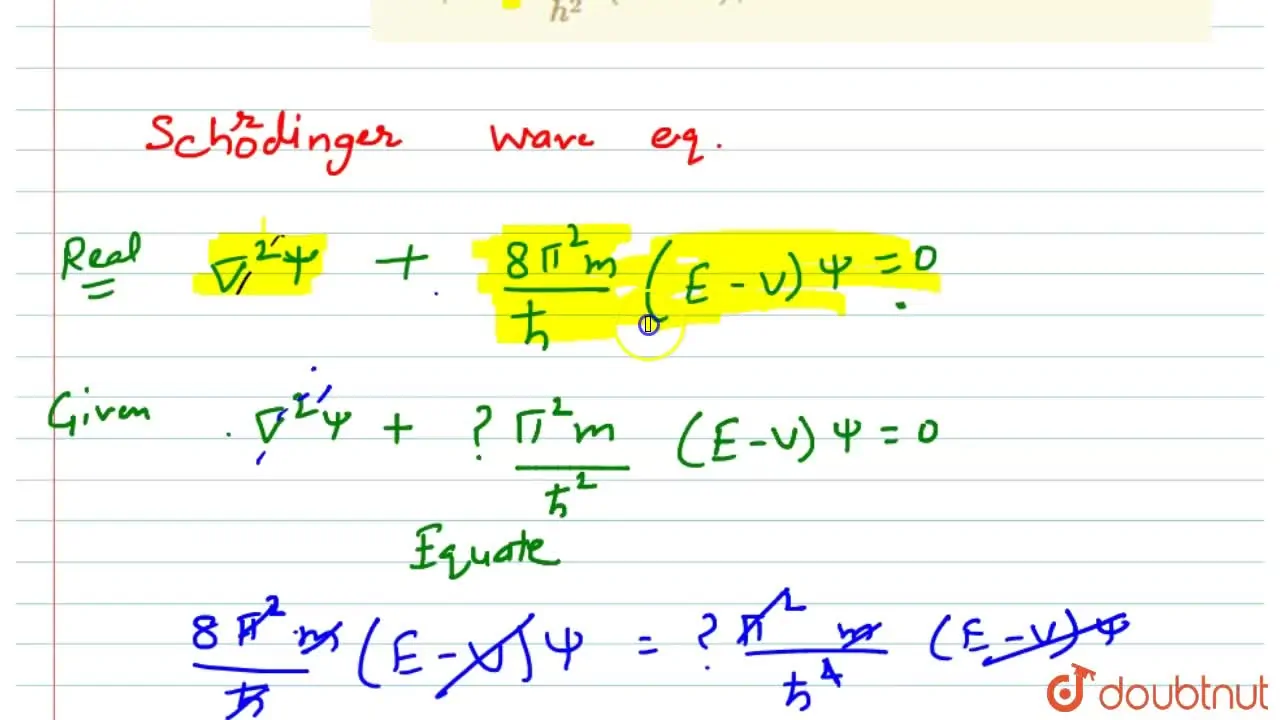 h²
Schrödinger wave eq.
Real ∇²Ψ + 8π²m/ħ (E - V) Ψ = 0
Given ∇²Ψ + ? π²m/ħ² (E - V) Ψ = 0
Equate
8π²m/ħ (E - V) Ψ = ? π² m/ħ (E - V) Ψ
doubtnut